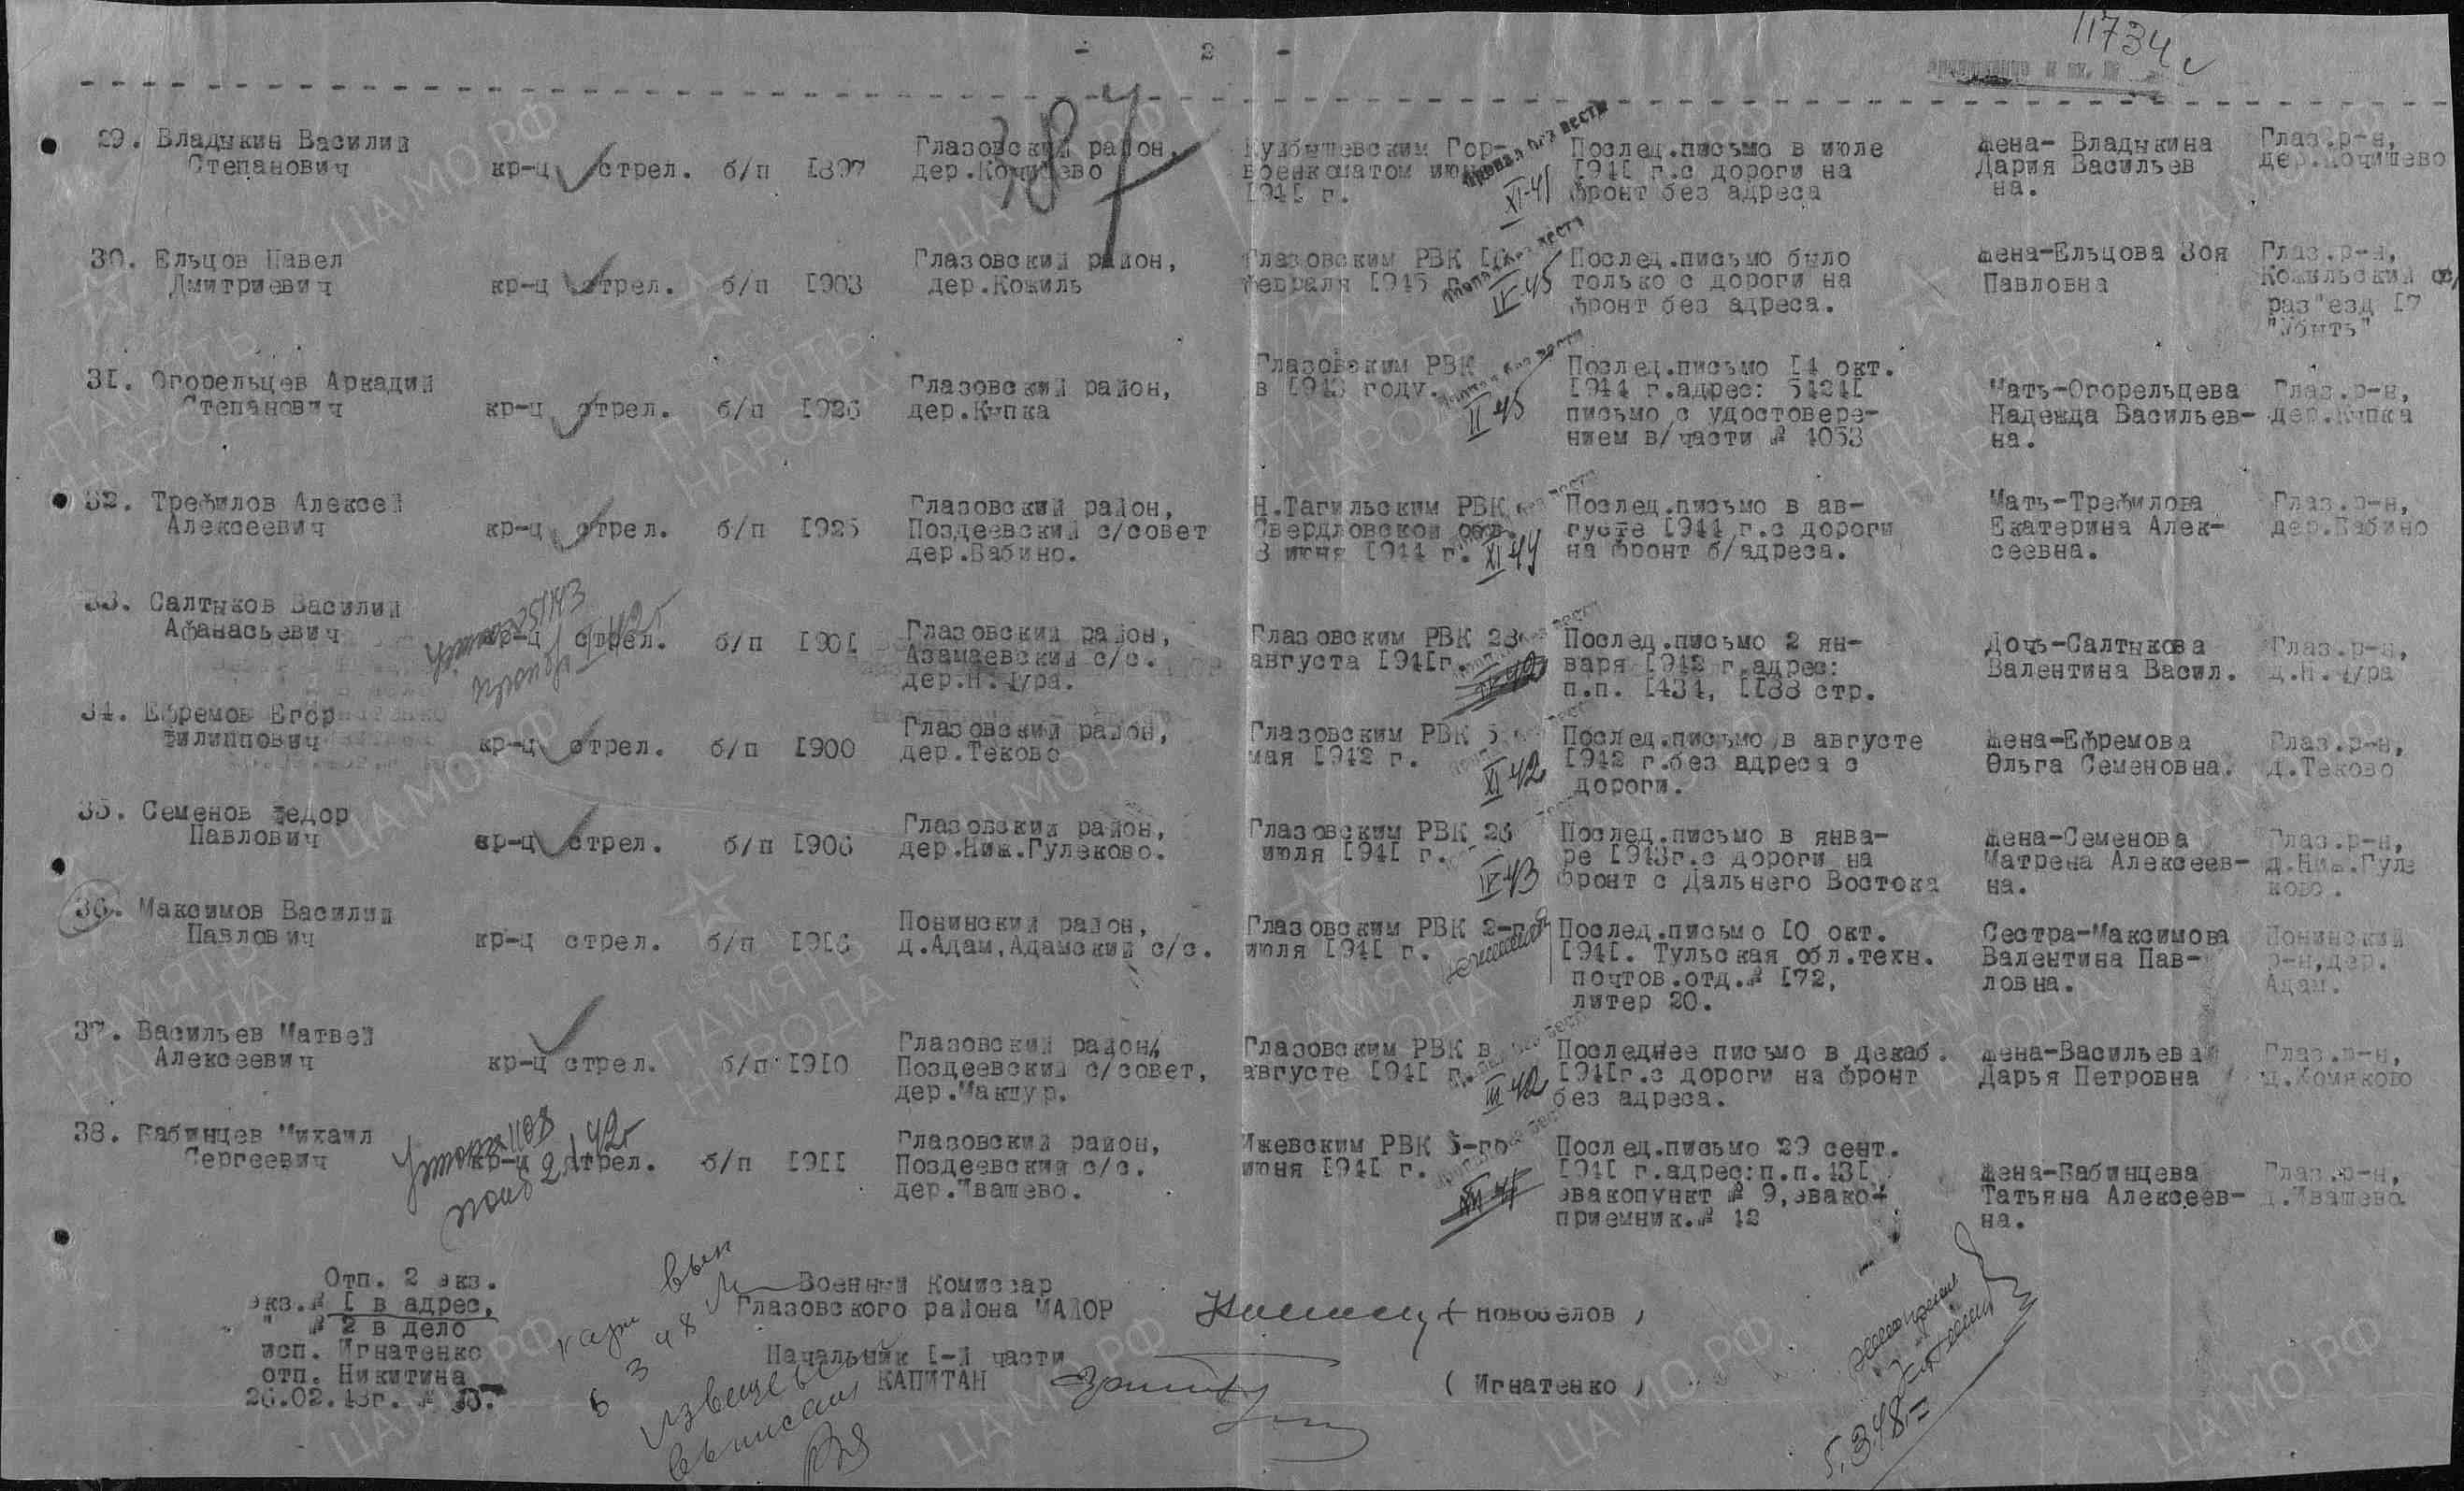 - 2 -
11734с
29. Владыкин Василий Степанович
кр-ц стрел. б/п 1897
Глазовский район, дер.Кочишево
Куйбышевским Гор-
военкоматом июн
1941 г.
пропал без вести
XI-41
Послед.письмо в июле
1941 г.с дороги на
фронт без адреса
Жена- Владыкина
Дария Васильев
на.
Глаз.р-н,
дер.Кочишево
387
30. Ельцов Павел
Дмитриевич
кр-ц стрел. б/п 1903
Глазовский район,
дер.Кожиль
Глазовским РВК
февраля 1945 г.
IV-45
Послед.письмо было
только с дороги на
фронт без адреса.
Жена-Ельцова Зоя
Павловна
Глаз.р-н,
Кожильский с/
раз"езд 17
"Убыть"
31. Огорельцев Аркадий
Степанович
кр-ц стрел. б/п 1926
Глазовский район,
дер.Кыпка
Глазовским РВК
в 1943 году.
II-45
Послед.письмо 14 окт.
1944 г.адрес: 54241
письмо с удостовере-
нием в/части № 4053
Мать-Огорельцева
Надежда Васильев-
на.
Глаз.р-н,
дер.Кыпка
32. Трефилов Алексей
Алексеевич
кр-ц стрел. б/п 1925
Глазовский район,
Поздеевский с/совет
дер.Бабино.
Н.Тагильским РВК
Свердловской обл.
3 июня 1944 г.
XI 44
Послед.письмо в ав-
густе 1944 г.с дороги
на фронт б/адреса.
Мать-Трефилова
Екатерина Алек-
сеевна.
Глаз.р-н,
дер.Бабино
33. Салтыков Василий
Афанасьевич
кр-ц стрел. б/п 1901
Глазовский район,
Азамаевский с/с.
дер.Н.Чура.
Глазовским РВК 28
августа 1941г.
Послед.письмо 2 ян-
варя 1942 г.адрес:
п.п. 1434, 1188 стр.
Дочь-Салтыкова
Валентина Васил.
Глаз.р-н,
д.Н.Чура
34. Ефремов Егор
Филиппович
кр-ц стрел. б/п 1900
Глазовский район,
дер.Теково
Глазовским РВК 5
мая 1942 г.
XI 42
Послед.письмо в августе
1942 г.без адреса с
дороги.
Жена-Ефремова
Ольга Семеновна.
Глаз.р-н,
д.Теково
35. Семенов Федор
Павлович
кр-ц стрел. б/п 1906
Глазовский район,
дер.Ниж.Гулеково.
Глазовским РВК 26
июля 1941 г.
IV 43
Послед.письмо в янва-
ре 1943г.с дороги на
фронт с Дальнего Востока
Жена-Семенова
Матрена Алексеев-
на.
Глаз.р-н,
д.Ниж.Гуле
ково.
36. Максимов Василий
Павлович
кр-ц стрел. б/п 1916
Понинский район,
д.Адам,Адамский с/с.
Глазовским РВК 2-го
июля 1941 г.
Послед.письмо 10 окт.
1941. Тульская обл.техн.
почтов.отд.№ 172,
литер 20.
Сестра-Максимова
Валентина Пав-
ловна.
Понинский
р-н,дер.
Адам.
37. Васильев Матвей
Алексеевич
кр-ц стрел. б/п 1910
Глазовский район,
Поздеевский с/совет,
дер.Макшур.
Глазовским РВК в
августе 1941 г.
III 42
Последнее письмо в декаб.
1941г.с дороги на фронт
без адреса.
Жена-Васильева
Дарья Петровна
Глаз.р-н,
д.Комяково
38. Бабинцев Михаил
Сергеевич
кр-ц стрел. б/п 1911
Глазовский район,
Поздеевский с/с.
дер.Ивашево.
Ижевским РВК 5-го
июня 1941 г.
Послед.письмо 29 сент.
1941 г.адрес:п.п.431
эвакопункт № 9,эвако-
приемник.№ 12
Жена-Бабинцева
Татьяна Алексеев-
на.
Глаз.р-н,
д.Ивашево
Отп. 2 экз.
экз.№ 1 в адрес,
" № 2 в дело
исп. Игнатенко
отп. Никитина
26.02.48г.
Военный Комиссар
Глазовского района МАЙОР
( Новоселов )
Начальник 1-й части
КАПИТАН
( Игнатенко )
извещение
выписаны
5.3.48
ЦА МО РФ
ПАМЯТЬ НАРОДА